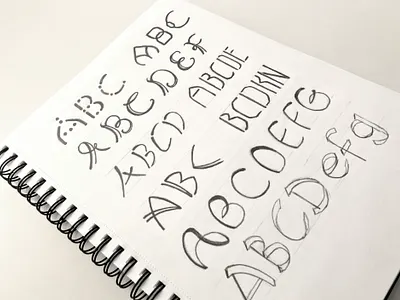 ABC ABC
ABC DEF
ABCD ABCDE
ABC BCDKN
ABCDEFG
ABCDefg